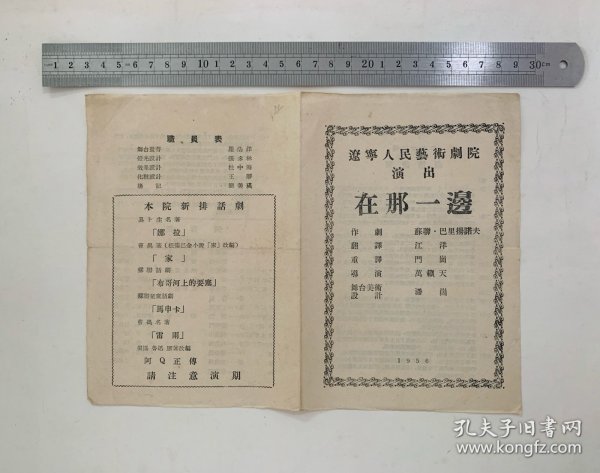 遼寧人民藝術劇院
演出
在那一邊
作劇 蘇聯·巴里揚諾夫
翻譯 江洋
重譯 門崗
導演 萬籟天
舞台美術設計 潘尚
1956
職員表
舞台監督
燈光設計
效果設計 杜中海
化粧設計 王
場記
本院新排話劇
易卜生名著
「娜拉」
曹禺著(根據巴金小說「家」改編)
「家」
蘇聯話劇
「布哥河上的要塞」
蘇聯兒童話劇
「馬申卡」
曹禺名著
「雷雨」
阿Q正傳
請注意演期
1 2 3 4 5 6 7 8 9 10 11 12 13 14 15 16 17 18 19 20 21 22 23 24 25 26 27 28 29 30cm
孔夫子旧书网
www.kongfz.com